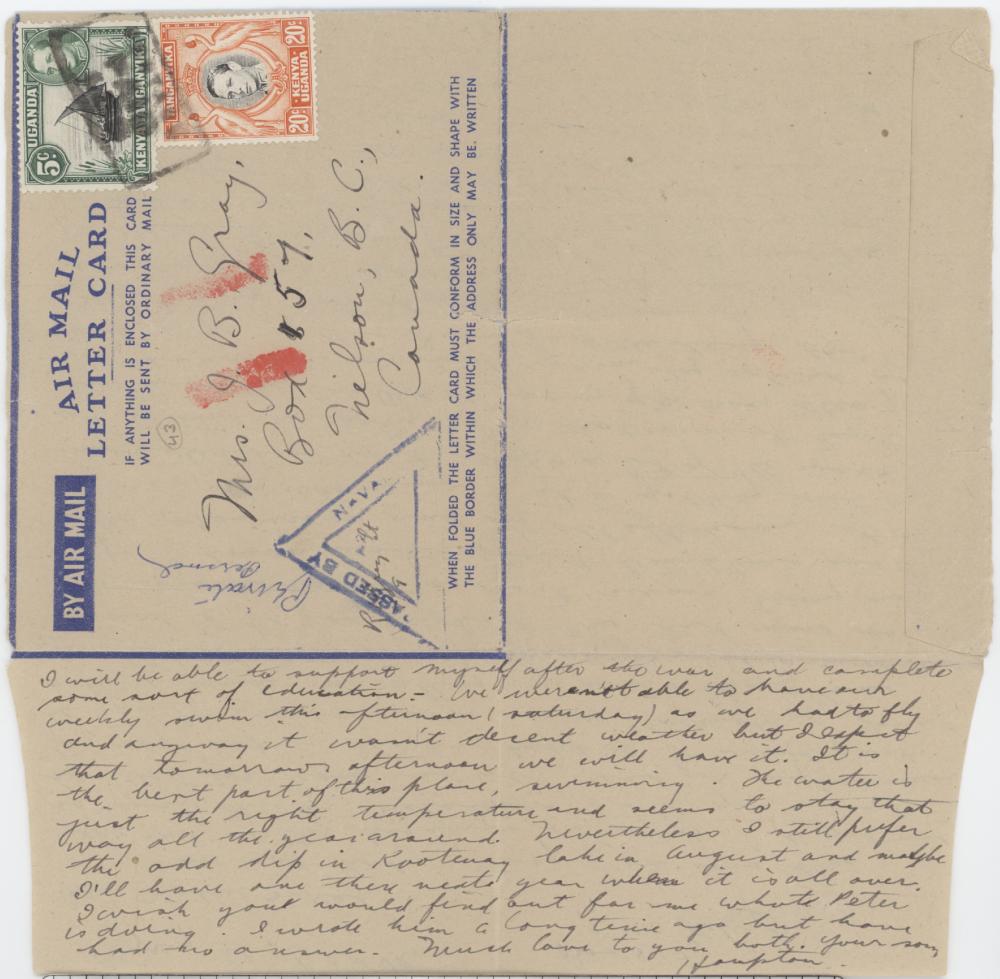 UGANDA
5c
KENYA TANGANYIKA
TANGANYIKA
20c
KENYA
UGANDA
20c
BY AIR MAIL
AIR MAIL
LETTER CARD
IF ANYTHING IS ENCLOSED THIS CARD
WILL BE SENT BY ORDINARY MAIL
43
Private
Personal
Mrs. J. B. Gray,
Box 857,
Nelson, B. C.,
Canada.
PASSED BY
NAVA
WHEN FOLDED THE LETTER CARD MUST CONFORM IN SIZE AND SHAPE WITH
THE BLUE BORDER WITHIN WHICH THE ADDRESS ONLY MAY BE WRITTEN
I will be able to support myself after the war and complete
some sort of education - We weren't able to have our
weekly swim this afternoon (saturday) as we had to fly
and anyway it wasn't decent weather but I expect
that tomorrow afternoon we will have it. It is
the best part of this place, swimming. The water is
just the right temperature and seems to stay that
way all the year around. Nevertheless I still prefer
the odd dip in Kootenay lake in August and maybe
I'll have one there next year when it is all over.
I wish you would find out for me what Peter
is doing. I wrote him a long time ago but have
had no answer. Much love to you both. Your son,
Hampton.